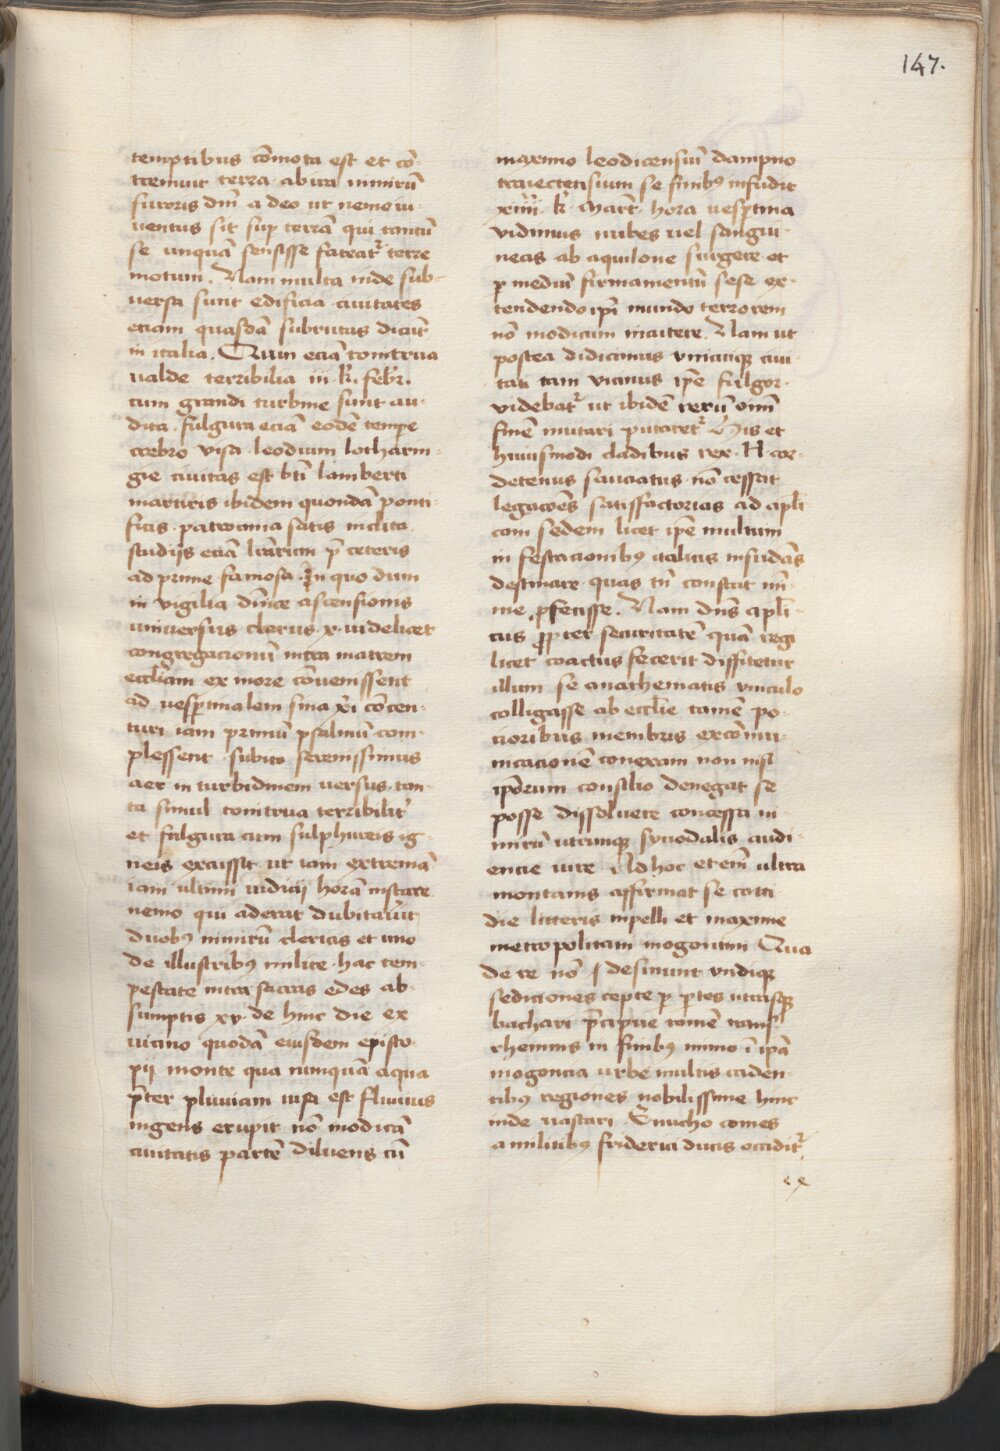 147.
temptibus cōmota est et cō-
tremuit terra ab ira nimirū
furoris dnī a deo ut nemo iu-
uentus sit sup terrā qui tantū
se unquā sensisse fateatr terre
motum. Nam multa inde sub-
uersa sunt edificia ciuitates
eciam quasdā subrutas dicūt
in italia. Quin eciā tonitrua
ualde terribilia iii k. febr.
cum grandi turbine sunt au-
dita. fulgura eciā eodē tempe
crebro visa. leodium lotharin-
gie ciuitas est bti lamberti
martiris ibidem quondā ponti-
ficis patrocinia satis inclita
studijs eciā litrarum p̄ ceteris
ad prime famosa. In quo dum
in vigilia dnice ascensionis
uniuersus clerus x. videlicet
congregacionū intra matrem
eccliam ex more cōuenissent
ad uesptinalem sina xi cōcen-
turi iam primū psalmū com-
plessent subito serenissimus
aer in turbidinem uersus tan-
ta simul tonitrua terribilitr
et fulgura cum sulphureis ig-
neis excussit ut iam extremā
iam ultimi iudicij horā instare
nemo qui aderat dubitauūt
duobus nimirū clericis et uno
de illustribus milite hac tem-
pestate intra sacras edes ab-
sumptis xv. de hinc die ex
uicino quodā eiusdem episco-
pij monte qua nunquā aqua
p̄ter pluuiam uisa est fluuius
ingens erupit nō modicā
ciuitatis partē diluens cū
maximo leodicensiū dampno
traiectensium se finibus infudit
xiiii. k. Marc. hora uesptina
vidimus nubes uel sangui-
neas ab aquilone surgere et
p mediū firmamentū sese ex-
tendendo ipi mundo terrorem
nō modicum incutere. Nam ut
postea didicimus vnicuique ciui-
tati tam vicinus ipe fulgor
videbatr ut ibidē rerū oīm
finē mutari putaretr His et
huiusmodi cladibus rex H cor-
detenus sauciatus nō cessat
legacōes satisfactorias ad apli-
cam sedem licet ipe multum
in festacionibus italicis insudās
destinare quas tn constat mi-
me pfecisse. Nam dns apli-
cus propter securitatē quā regi
licet coactus fecerit diffitetur
illum se anathematis vinculo
colligasse ab ecclie tamē po-
cioribus membris excōmu-
nicacionē conexam non nisi
ipōrum consilio denegat se
posse dissoluere concessa ni-
mirū utrimque synodalis audi-
encie iure Ad hoc et em ultra
montanis affirmat se coti
die litteris inpelli et maxime
metropolitani mogontini Qua
de re nō desinunt vndique
sediciones cepte p ptes utrasque
bachari p̄cipue tamē trans
rhenuns in finibus immo ī ipā
mogoncia urbe multis ciden-
tibus regiones nobilissime hinc
inde uastari. Emicho comes
a militibus friderici ducis occiditr